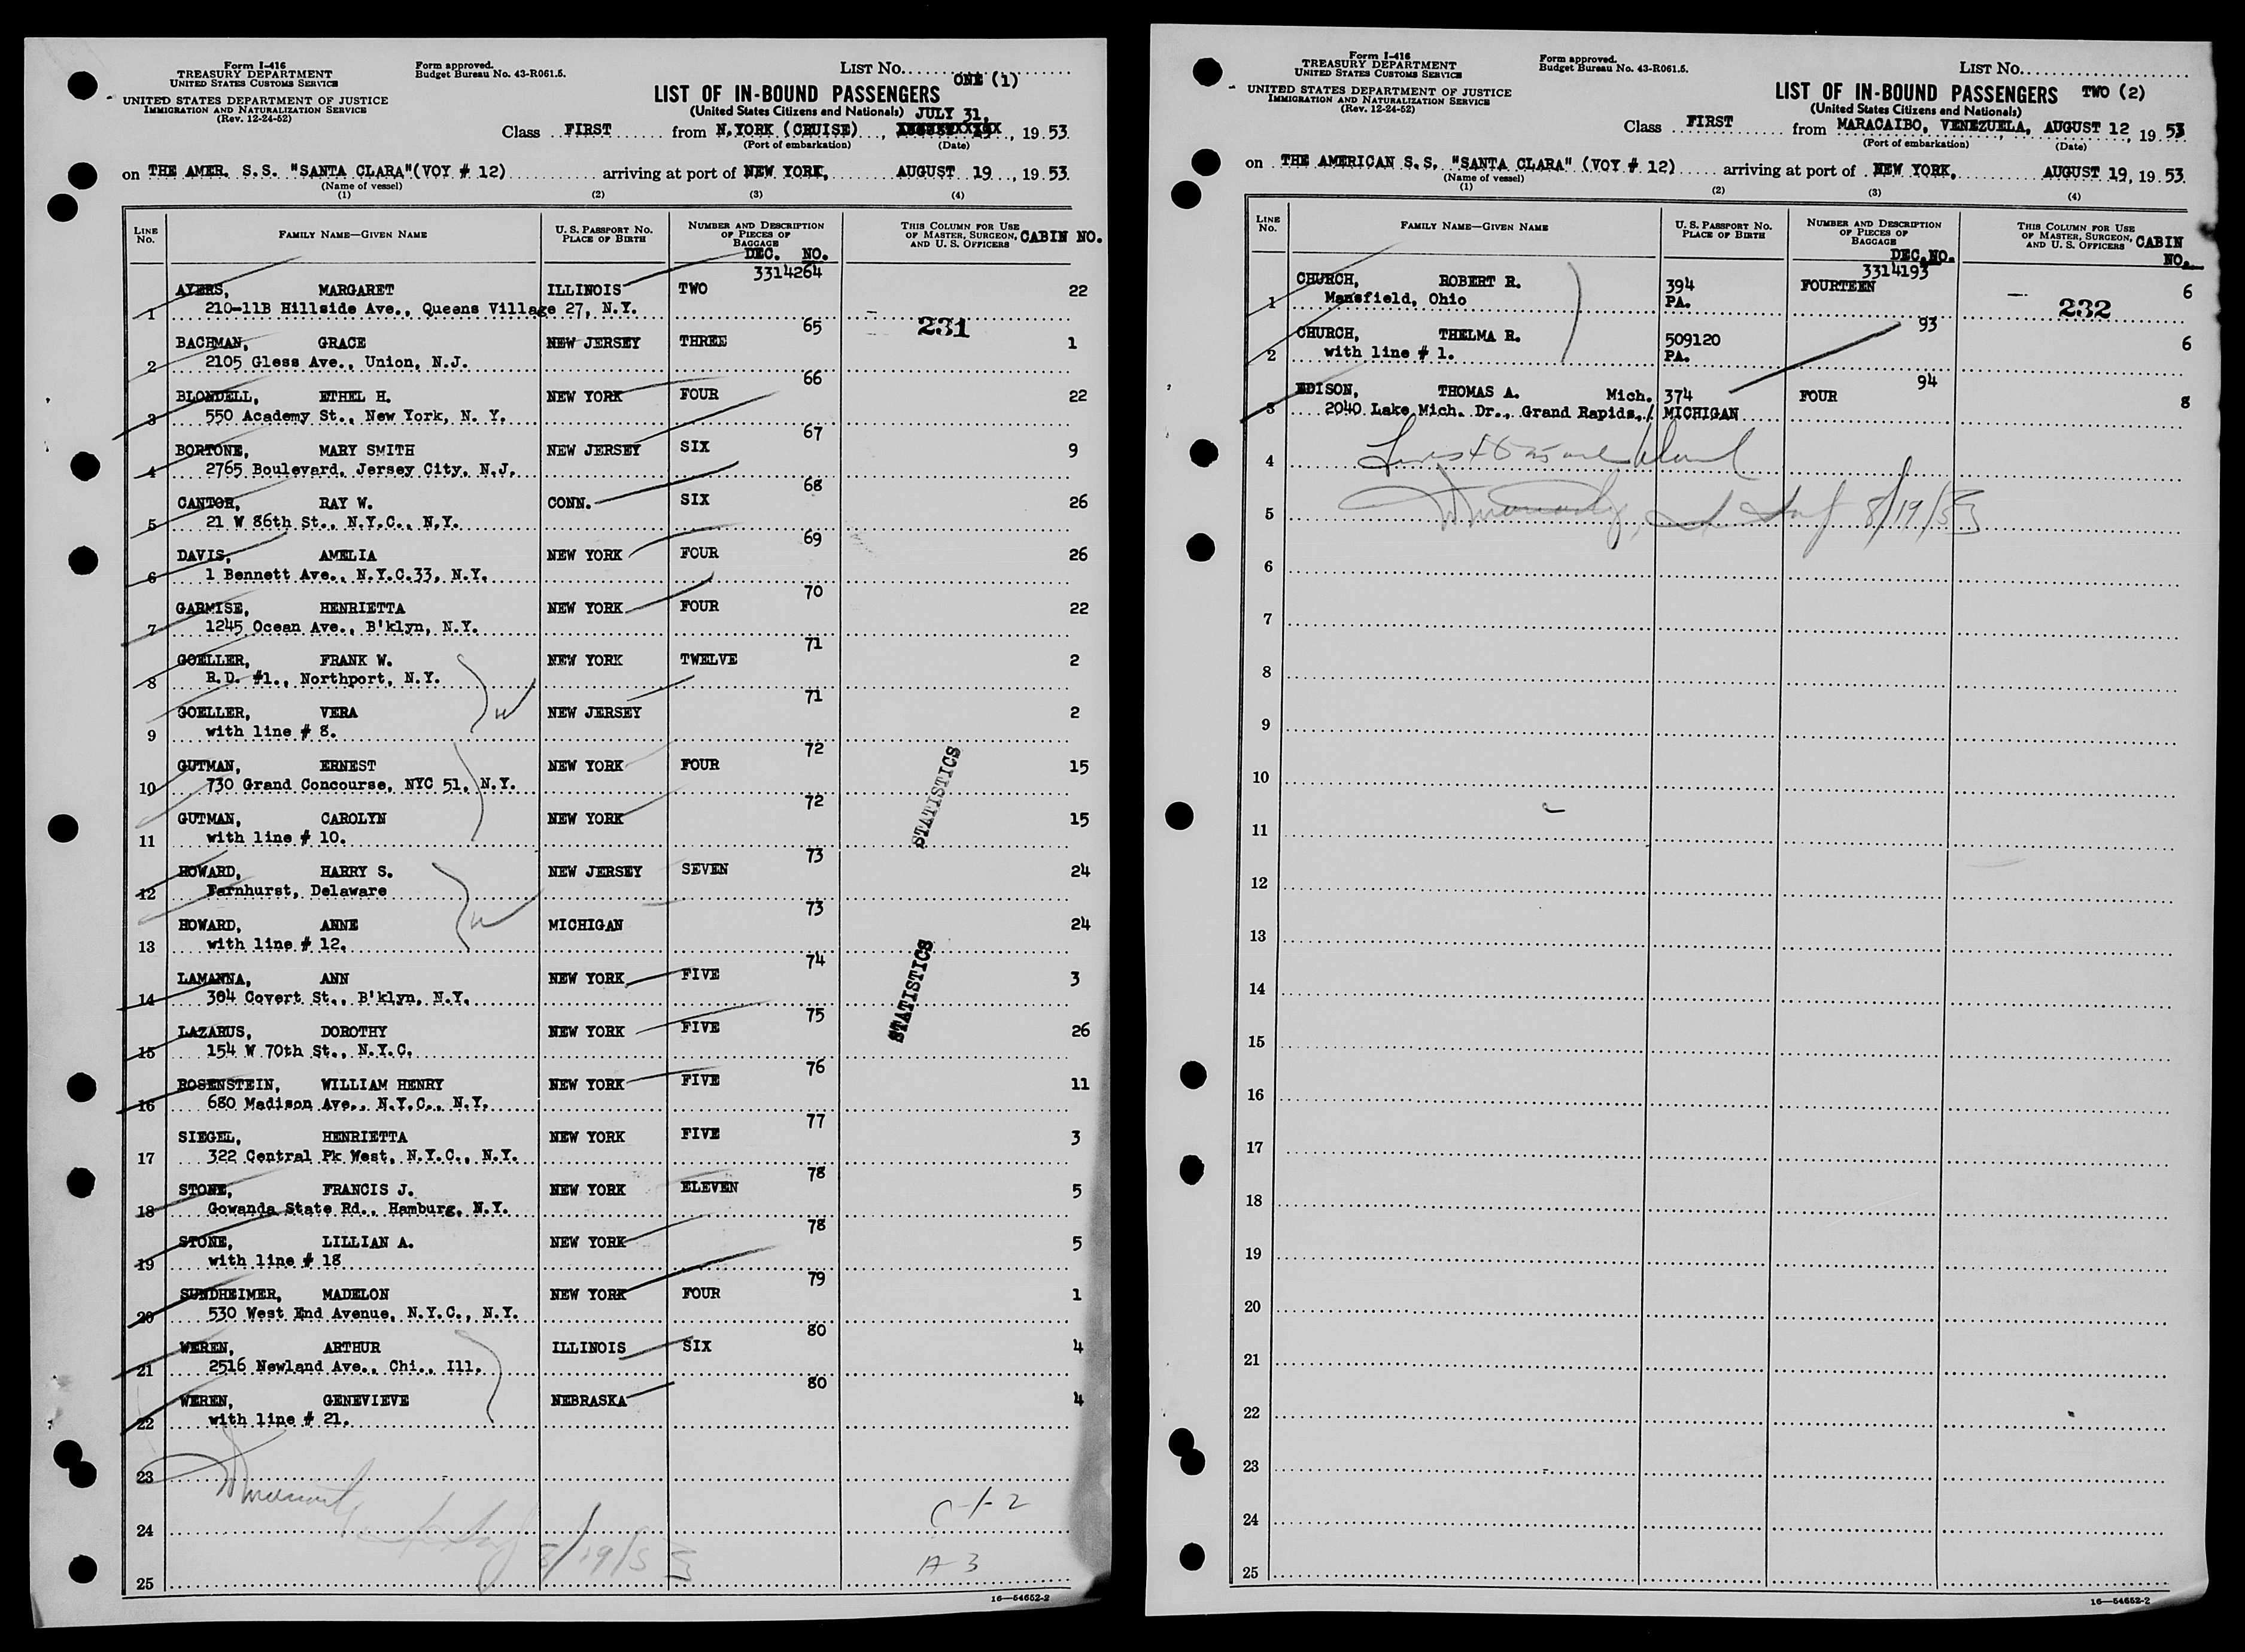 Form I-416
TREASURY DEPARTMENT
UNITED STATES CUSTOMS SERVICE
UNITED STATES DEPARTMENT OF JUSTICE
IMMIGRATION AND NATURALIZATION SERVICE
(Rev. 12-24-52)
Form approved.
Budget Bureau No. 43-R061.5.
LIST No. ONE (1)
LIST OF IN-BOUND PASSENGERS
(United States Citizens and Nationals) JULY 31,
Class FIRST from N.YORK (CRUISE), , 1953
(Port of embarkation) (Date)
on THE AMER. S.S. "SANTA CLARA"(VOY # 12) arriving at port of NEW YORK, AUGUST 19, 1953
(Name of vessel)
(1) (2) (3) (4)
LINE No. FAMILY NAME—GIVEN NAME U. S. PASSPORT No. PLACE OF BIRTH NUMBER AND DESCRIPTION OF PIECES OF BAGGAGE DEC. NO. THIS COLUMN FOR USE OF MASTER, SURGEON, AND U. S. OFFICERS CABIN NO.
3314264
1 AYERS, MARGARET ILLINOIS TWO 22
210-11B Hillside Ave., Queens Village 27, N.Y.
65 231
2 BACHMAN, GRACE NEW JERSEY THREE 1
2105 Gless Ave., Union, N.J.
66
3 BLONDELL, ETHEL H. NEW YORK FOUR 22
550 Academy St., New York, N. Y.
67
4 BORTONE, MARY SMITH NEW JERSEY SIX 9
2765 Boulevard, Jersey City, N.J.
68
5 CANTOR, RAY W. CONN. SIX 26
21 W 86th St., N.Y.C., N.Y.
69
6 DAVIS, AMELIA NEW YORK FOUR 26
1 Bennett Ave., N.Y.C.33, N.Y.
70
7 GARMISE, HENRIETTA NEW YORK FOUR 22
1245 Ocean Ave., B'klyn, N.Y.
71
8 GOELLER, FRANK W. NEW YORK TWELVE 2
R.D. #1., Northport, N.Y.
71
9 GOELLER, VERA NEW JERSEY 2
with line # 8.
72
10 GUTMAN, ERNEST NEW YORK FOUR 15
730 Grand Concourse, NYC 51, N.Y.
72
STATISTICS
11 GUTMAN, CAROLYN NEW YORK 15
with line # 10.
73
12 HOWARD, HARRY S. NEW JERSEY SEVEN 24
Farnhurst, Delaware
73
13 HOWARD, ANNE MICHIGAN 24
with line # 12.
74
STATISTICS
14 LAMANNA, ANN NEW YORK FIVE 3
304 Covert St., B'klyn, N.Y.
75
15 LAZARUS, DOROTHY NEW YORK FIVE 26
154 W 70th St., N.Y.C.
76
16 ROSENSTEIN, WILLIAM HENRY NEW YORK FIVE 11
680 Madison Ave., N.Y.C., N.Y.
77
17 SIEGEL, HENRIETTA NEW YORK FIVE 3
322 Central Pk West, N.Y.C., N.Y.
78
18 STONE, FRANCIS J. NEW YORK ELEVEN 5
Gowanda State Rd., Hamburg, N.Y.
78
19 STONE, LILLIAN A. NEW YORK 5
with line # 18
79
20 SUNDHEIMER, MADELON NEW YORK FOUR 1
530 West End Avenue, N.Y.C., N.Y.
80
21 WEREN, ARTHUR ILLINOIS SIX 4
2516 Newland Ave., Chi., Ill.
80
22 WEREN, GENEVIEVE NEBRASKA 4
with line # 21.
23
24 C-1-2
8/19/53
25 A 3
16—54652-2
Form I-416
TREASURY DEPARTMENT
UNITED STATES CUSTOMS SERVICE
UNITED STATES DEPARTMENT OF JUSTICE
IMMIGRATION AND NATURALIZATION SERVICE
(Rev. 12-24-52)
Form approved.
Budget Bureau No. 43-R061.5.
LIST No.
LIST OF IN-BOUND PASSENGERS TWO (2)
(United States Citizens and Nationals)
Class FIRST from MARACAIBO, VENEZUELA, AUGUST 12, 1953
(Port of embarkation) (Date)
on THE AMERICAN S.S. "SANTA CLARA" (VOY # 12) arriving at port of NEW YORK, AUGUST 19, 1953
(Name of vessel)
(1) (2) (3) (4)
LINE No. FAMILY NAME—GIVEN NAME U. S. PASSPORT No. PLACE OF BIRTH NUMBER AND DESCRIPTION OF PIECES OF BAGGAGE DEC. NO. THIS COLUMN FOR USE OF MASTER, SURGEON, AND U. S. OFFICERS CABIN NO.
3314193
1 CHURCH, ROBERT R. 394 FOURTEEN 6
Mansfield, Ohio PA. 232
93
2 CHURCH, THELMA R. 509120 6
with line # 1. PA.
94
3 EDISON, THOMAS A. Mich. 374 FOUR 8
2040 Lake Mich. Dr., Grand Rapids,/ MICHIGAN
4
5 8/19/53
6
7
8
9
10
11
12
13
14
15
16
17
18
19
20
21
22
23
24
25
16—54652-2